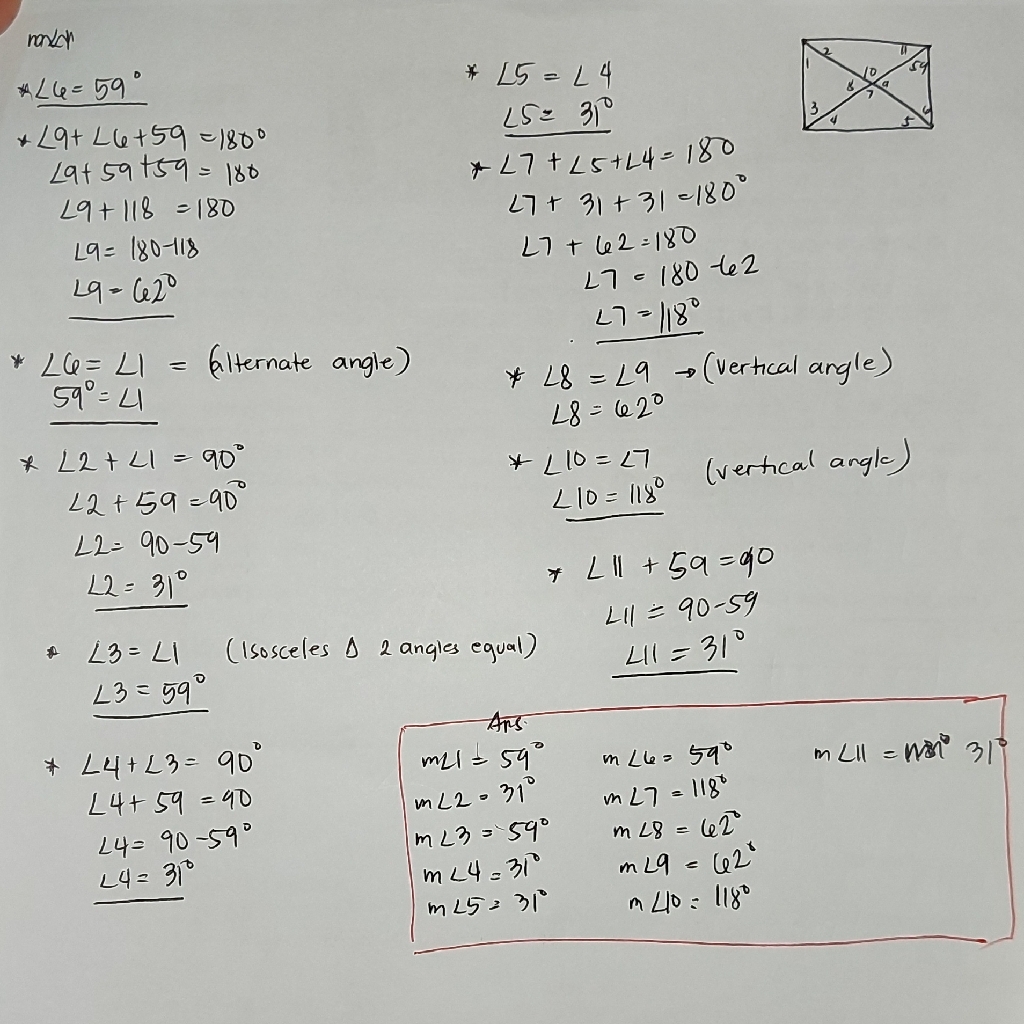 * ∠6 = 59°
* ∠9 + ∠6 + 59 = 180°
∠9 + 59 + 59 = 180
∠9 + 118 = 180
∠9 = 180 - 118
∠9 = 62°
* ∠6 = ∠1 = (alternate angle)
59° = ∠1
* ∠2 + ∠1 = 90°
∠2 + 59 = 90°
∠2 = 90 - 59
∠2 = 31°
* ∠3 = ∠1 (Isosceles Δ 2 angles equal)
∠3 = 59°
* ∠4 + ∠3 = 90°
∠4 + 59 = 90
∠4 = 90 - 59°
∠4 = 31°
* ∠5 = ∠4
∠5 = 31°
* ∠7 + ∠5 + ∠4 = 180
∠7 + 31 + 31 = 180°
∠7 + 62 = 180
∠7 = 180 - 62
∠7 = 118°
* ∠8 = ∠9 → (vertical angle)
∠8 = 62°
* ∠10 = ∠7 (vertical angle)
∠10 = 118°
* ∠11 + 59 = 90
∠11 = 90 - 59
∠11 = 31°
2 11
1 10 59
8 9
7
3 6
4 5
Ans.
m∠1 = 59° m∠6 = 59° m∠11 = 31°
m∠2 = 31° m∠7 = 118°
m∠3 = 59° m∠8 = 62°
m∠4 = 31° m∠9 = 62°
m∠5 = 31° m∠10 = 118°